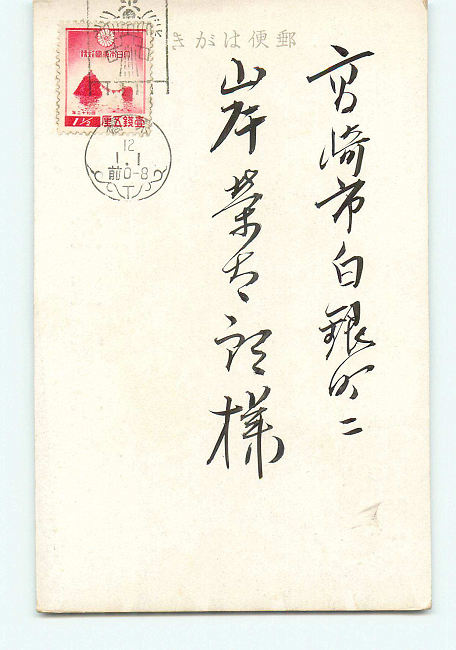 郵便はがき
高崎市白銀町二
山岸榮太郎様
大日本帝國郵便
1½
壹錢五厘
12
1.1
前0-8